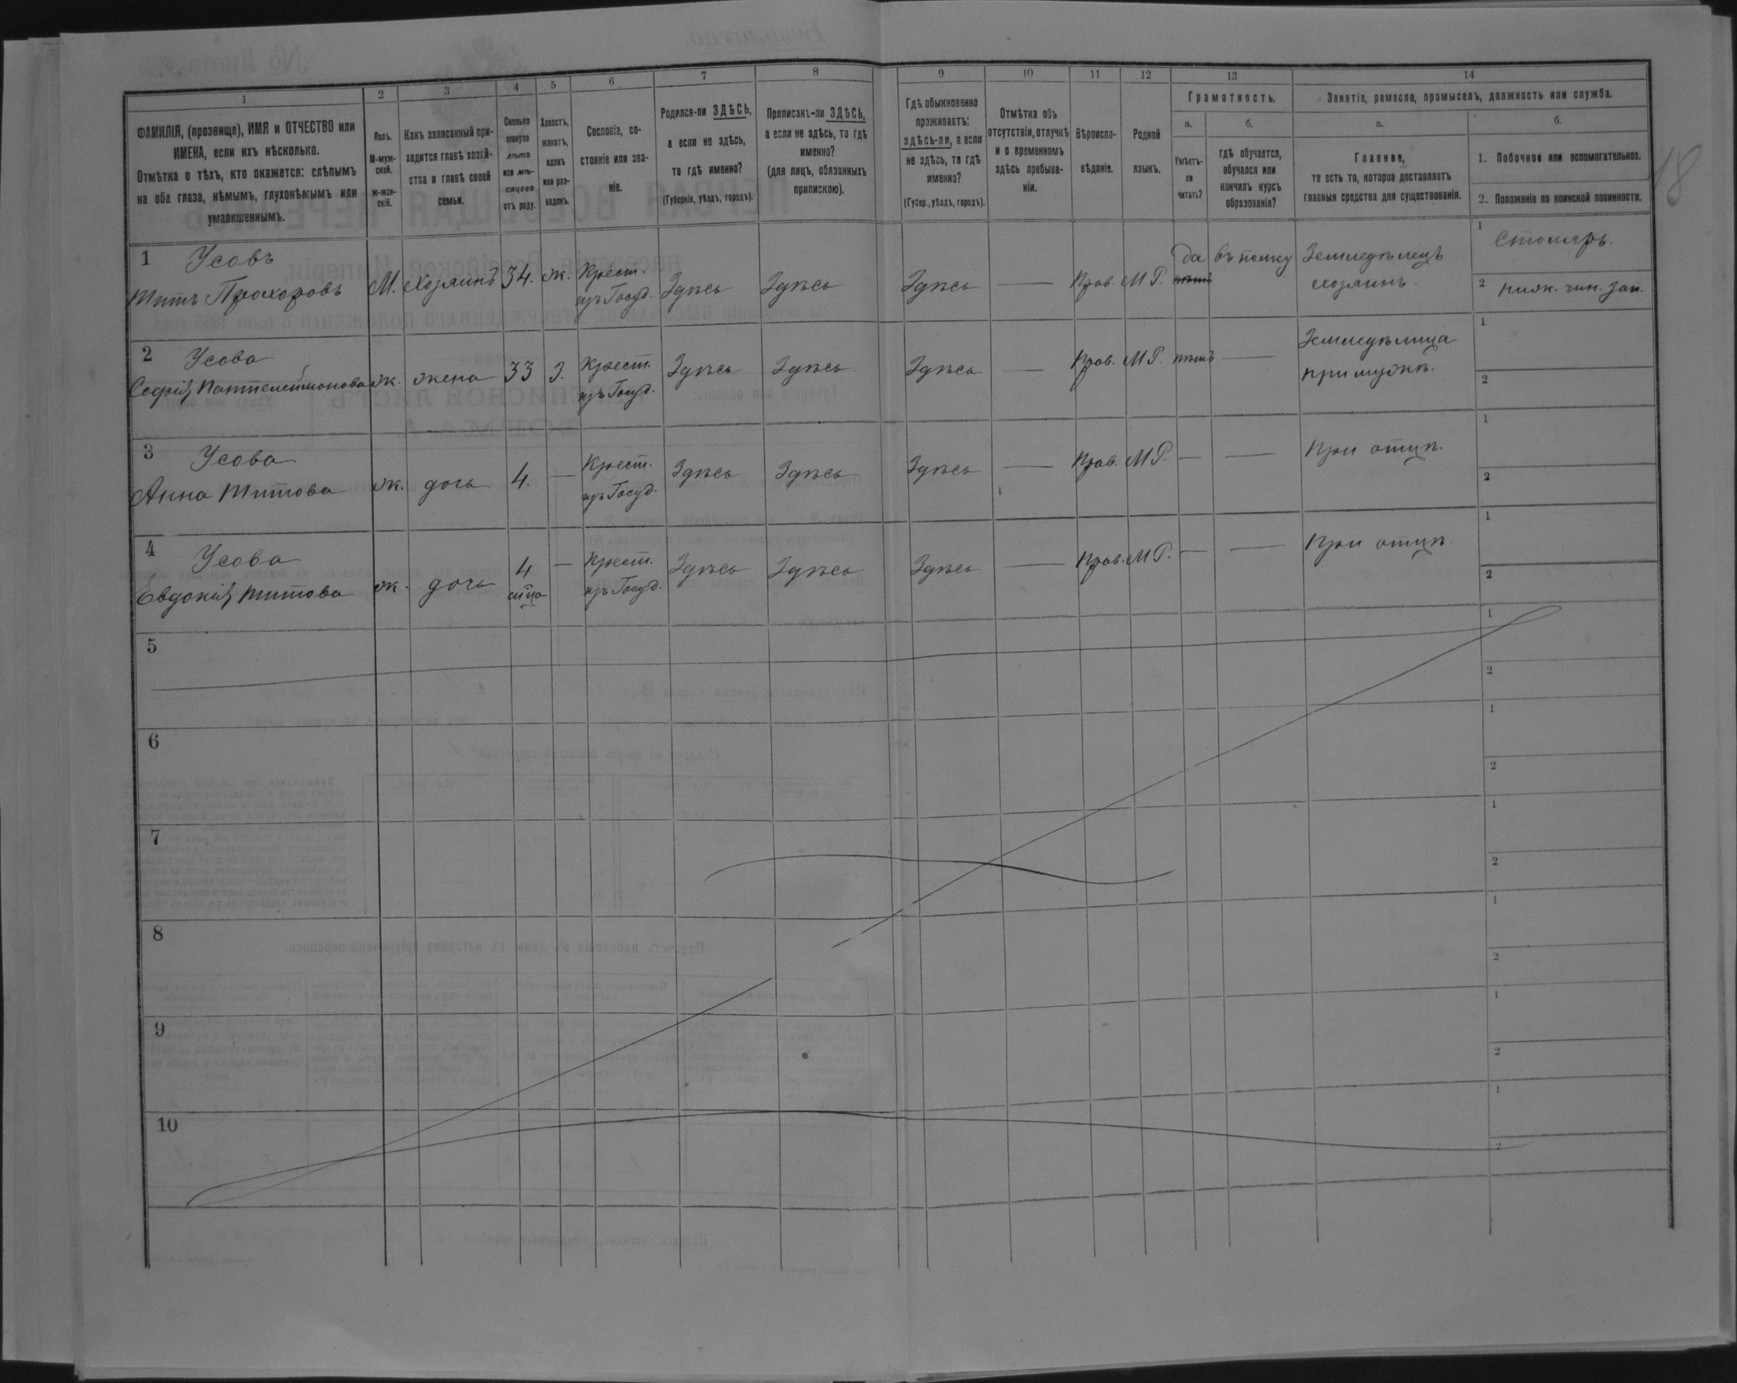 1 2 3 4 5 6 7 8 9 10 11 12 13 14
ФАМИЛІЯ, (прозвище), ИМЯ и ОТЧЕСТВО или
ИМЕНА, если ихъ нѣсколько.
Отмѣтка о тѣхъ, кто окажется: слѣпымъ
на оба глаза, нѣмымъ, глухонѣмымъ или
умалишеннымъ.
Полъ.
М-муж-
ской.
ж-жен-
скій.
Какъ записанный при-
ходится главѣ хозяй-
ства и главѣ своей
семьи.
Сколько
минуло
лѣтъ
или мѣ-
сяцевъ
отъ роду.
Холостъ,
женатъ,
вдовъ
или раз-
веденъ.
Сословіе, со-
стояніе или зва-
ніе.
Родился-ли ЗДѢСЬ,
а если не здѣсь,
то гдѣ именно?
(Губернія, уѣздъ, городъ).
Приписанъ-ли ЗДѢСЬ,
а если не здѣсь, то гдѣ
именно?
(для лицъ, обязанныхъ
припискою).
Гдѣ обыкновенно
проживаетъ:
здѣсь-ли, а если
не здѣсь, то гдѣ
именно?
(Губер., уѣздъ, городъ).
Отмѣтка объ
отсутствіи, отлучкѣ
и о временномъ
здѣсь пребыва-
ніи.
Вѣроиспо-
вѣданіе.
Родной
языкъ.
Грамотность.
а.
Умѣетъ-
ли
читать?
б.
гдѣ обучается,
обучался или
кончилъ курсъ
образованія?
Занятіе, ремесло, промыселъ, должность или служба.
а.
Главное,
то есть то, которое доставляетъ
главныя средства для существованія.
б.
1. Побочное или вспомогательное.
2. Положеніе по воинской повинности.
18
1 Усовъ
Титъ Прохоровъ
М. хозяинъ 34. ж. Крест.
изъ Госуд. Здѣсь Здѣсь Здѣсь — Прав. М Р. да
нѣтъ
въ полку Земледѣлецъ
хозяинъ.
1 Столяръ.
2 нижн. чин. зап.
2 Усова
Софія Пантелеймонова
ж. жена 33 З. Крест.
изъ Госуд. Здѣсь Здѣсь Здѣсь Прав. М Р. нѣтъ — Земледѣлица
при мужѣ.
1
2
3 Усова
Анна Титова
ж. дочь 4. — Крест.
изъ Госуд. Здѣсь Здѣсь Здѣсь — Прав. М Р. — — При отцѣ.
1
2
4 Усова
Евдокія Титова
ж. дочь 4
м-ца — Крест.
изъ Госуд. Здѣсь Здѣсь Здѣсь — Прав. М Р. — — При отцѣ.
1
2
5
1
2
6
1
2
7
1
2
8
1
2
9
1
2
10
1
2